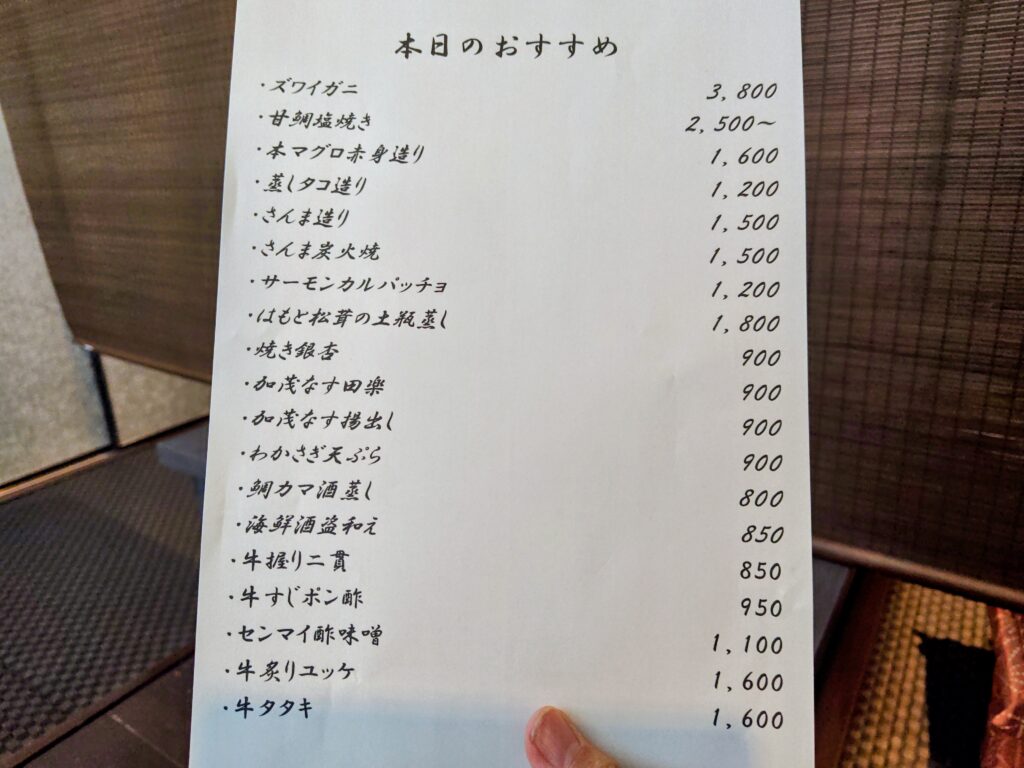 本日のおすすめ
・ズワイガニ 3,800
・甘鯛塩焼き 2,500～
・本マグロ赤身造り 1,600
・蒸しタコ造り 1,200
・さんま造り 1,500
・さんま炭火焼 1,500
・サーモンカルパッチョ 1,200
・はもと松茸の土瓶蒸し 1,800
・焼き銀杏 900
・加茂なす田楽 900
・加茂なす揚出し 900
・わかさぎ天ぷら 900
・鯛カマ酒蒸し 800
・海鮮酒盗和え 850
・牛握り二貫 850
・牛すじポン酢 950
・センマイ酢味噌 1,100
・牛炙りユッケ 1,600
・牛タタキ 1,600